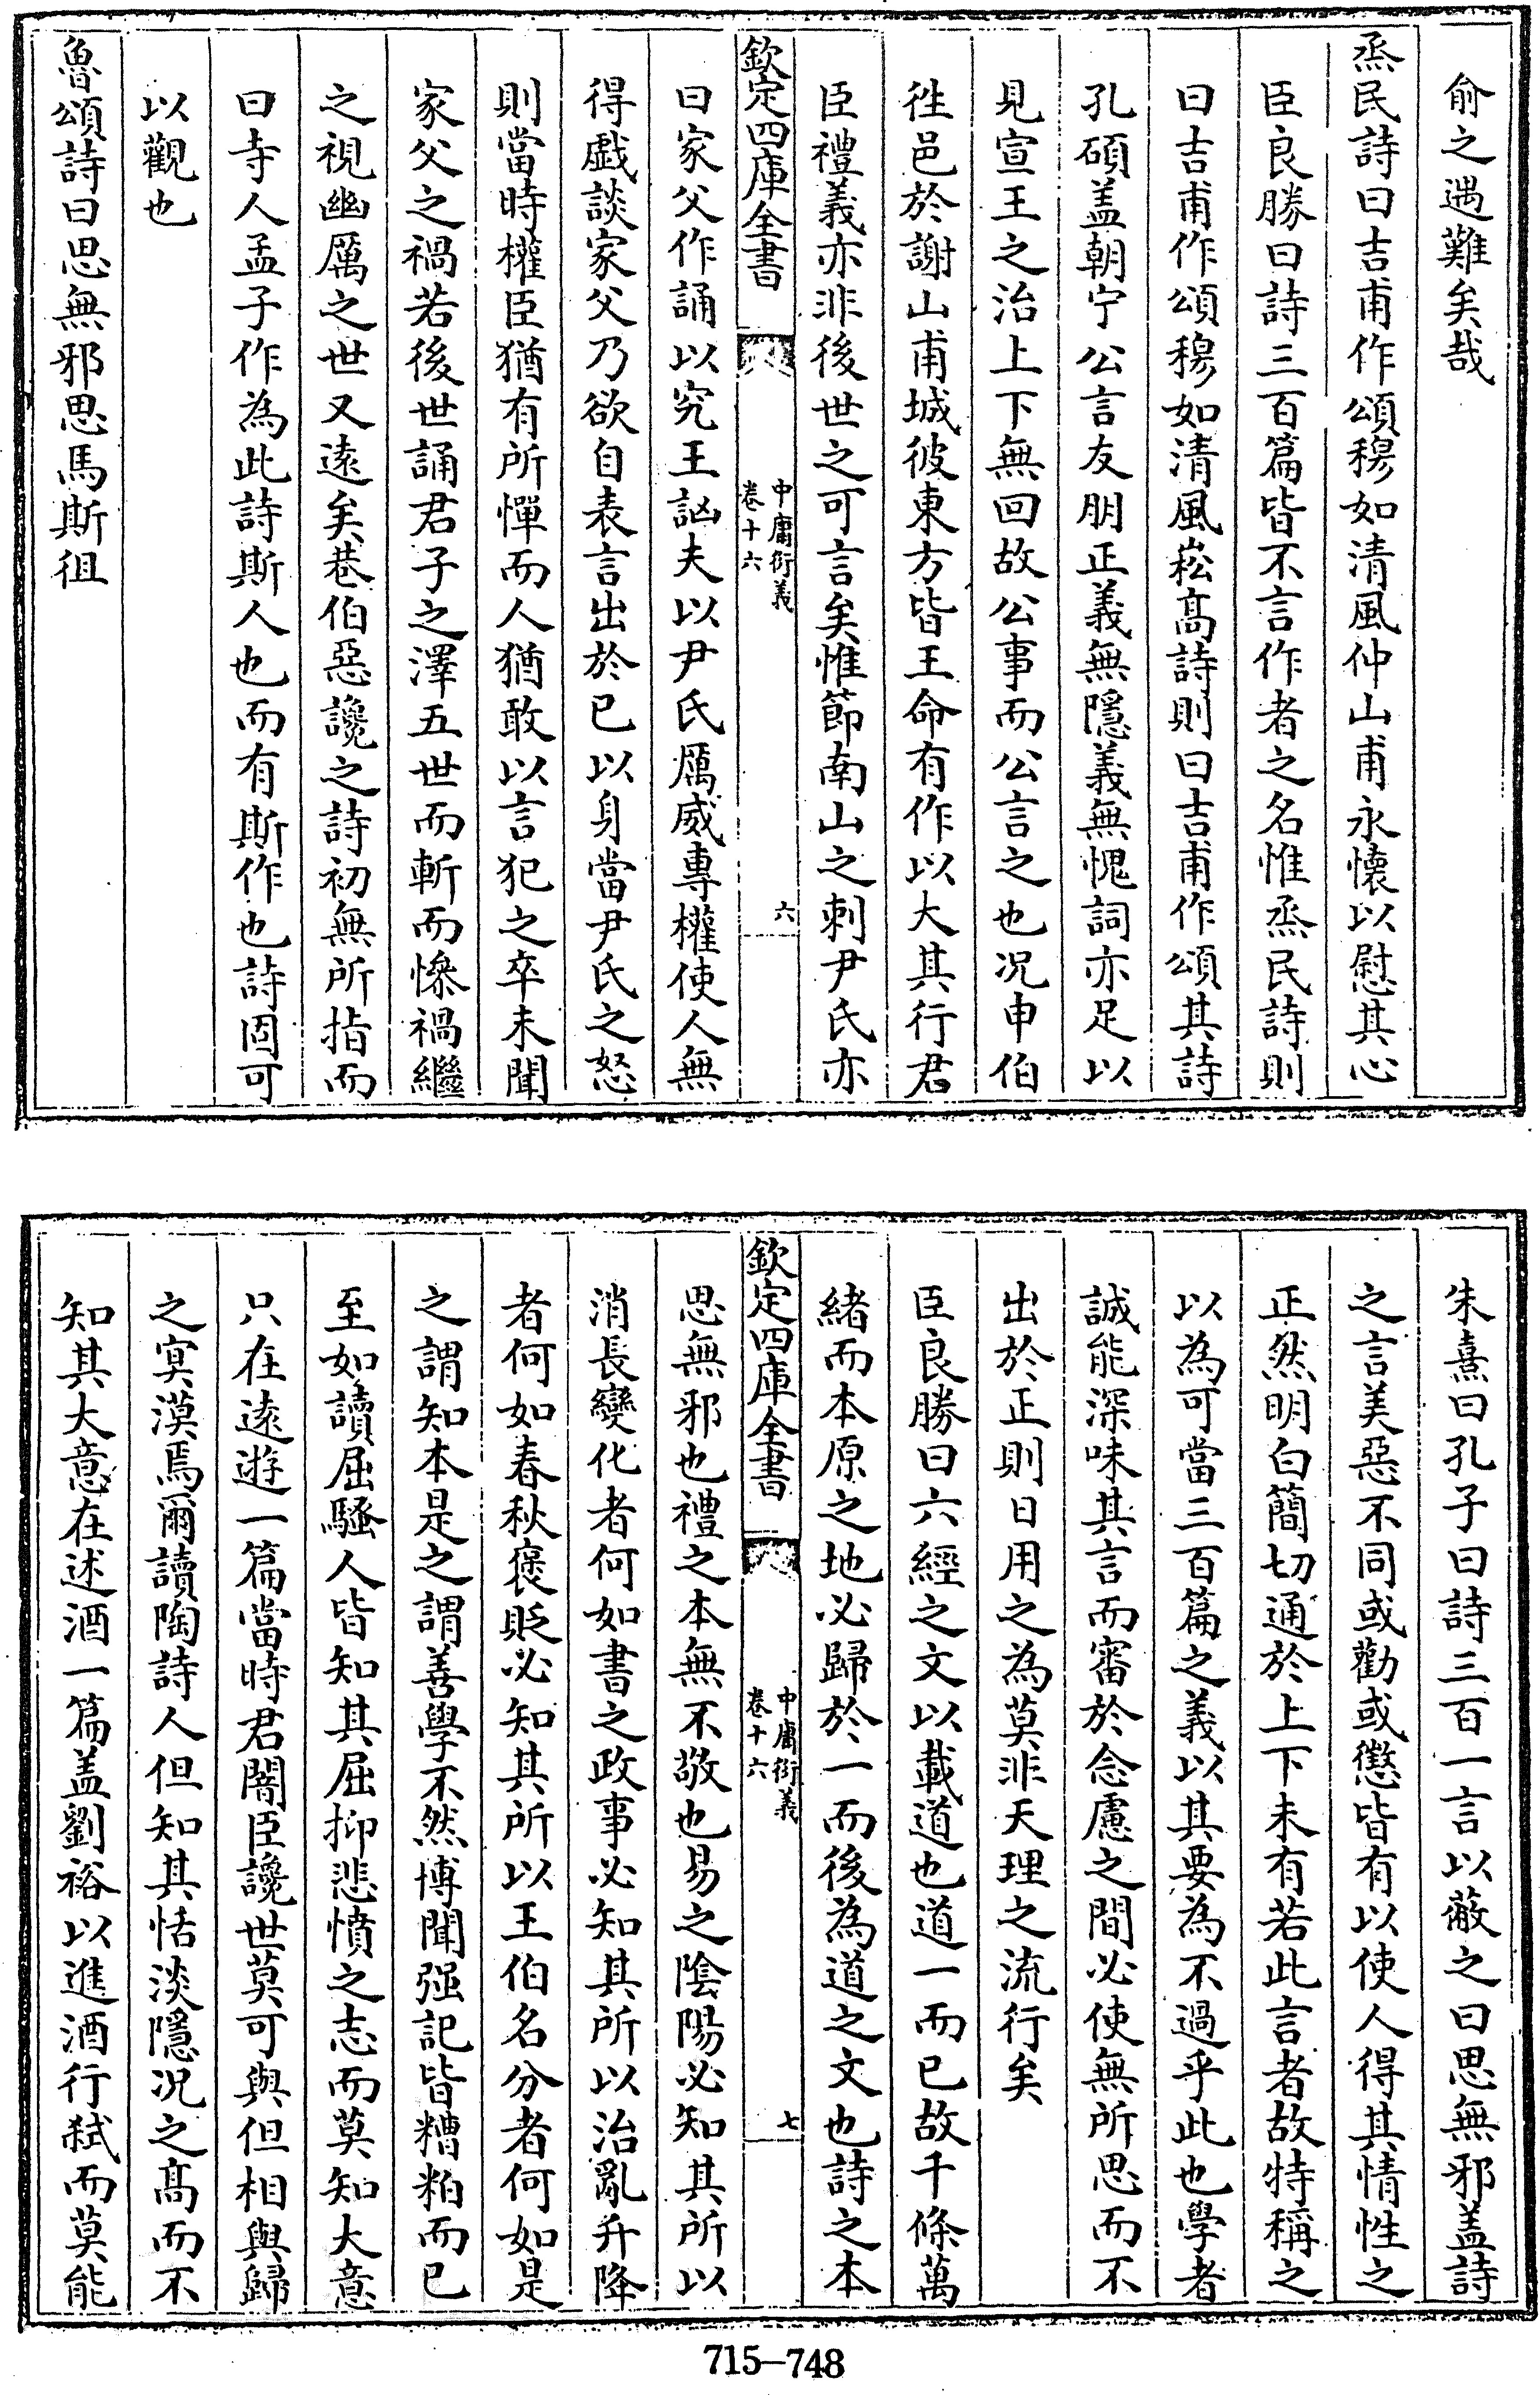 俞之遇難矣哉
烝民詩曰吉甫作頌穆如清風仲山甫永懷以慰其心
臣良勝曰詩三百篇皆不言作者之名惟烝民詩則
曰吉甫作頌穆如清風崧髙詩則曰吉甫作頌其詩
孔碩盖朝宁公言友朋正義無隱義無愧詞亦足以
見宣王之治上下無回故公事而公言之也况申伯
徃邑於謝山甫城彼東方皆王命有作以大其行君
臣禮義亦非後世之可言矣惟節南山之刺尹氏亦
欽定四庫全書
中庸衍義
卷十六
六
曰家父作誦以究王訩夫以尹氏厲威專權使人無
得戲談家父乃欲自表言出於已以身當尹氏之怒
則當時權臣猶有所憚而人猶敢以言犯之卒未聞
家父之禍若後世誦君子之澤五世而斬而慘禍繼
之視幽厲之世又逺矣巷伯惡讒之詩初無所指而
曰寺人孟子作為此詩斯人也而有斯作也詩固可
以觀也
魯頌詩曰思無邪思馬斯徂
朱熹曰孔子曰詩三百一言以蔽之曰思無邪盖詩
之言美惡不同或勸或懲皆有以使人得其情性之
正然明白簡切通於上下未有若此言者故特稱之
以為可當三百篇之義以其要為不過乎此也學者
誠能深味其言而審於念慮之間必使無所思而不
出於正則日用之為莫非天理之流行矣
臣良勝曰六經之文以載道也道一而已故千條萬
緒而本原之地必歸於一而後為道之文也詩之本
欽定四庫全書
中庸衍義
卷十六
七
思無邪也禮之本無不敬也易之隂陽必知其所以
消長變化者何如書之政事必知其所以治亂升降
者何如春秋褒貶必知其所以王伯名分者何如是
之謂知本是之謂善學不然博聞强記皆糟粕而已
至如讀屈騷人皆知其屈抑悲憤之志而莫知大意
只在逺遊一篇當時君闇臣讒世莫可與但相與歸
之冥漠焉爾讀陶詩人但知其恬淡隱况之髙而不
知其大意在述酒一篇盖劉裕以進酒行弑而莫能
715-748